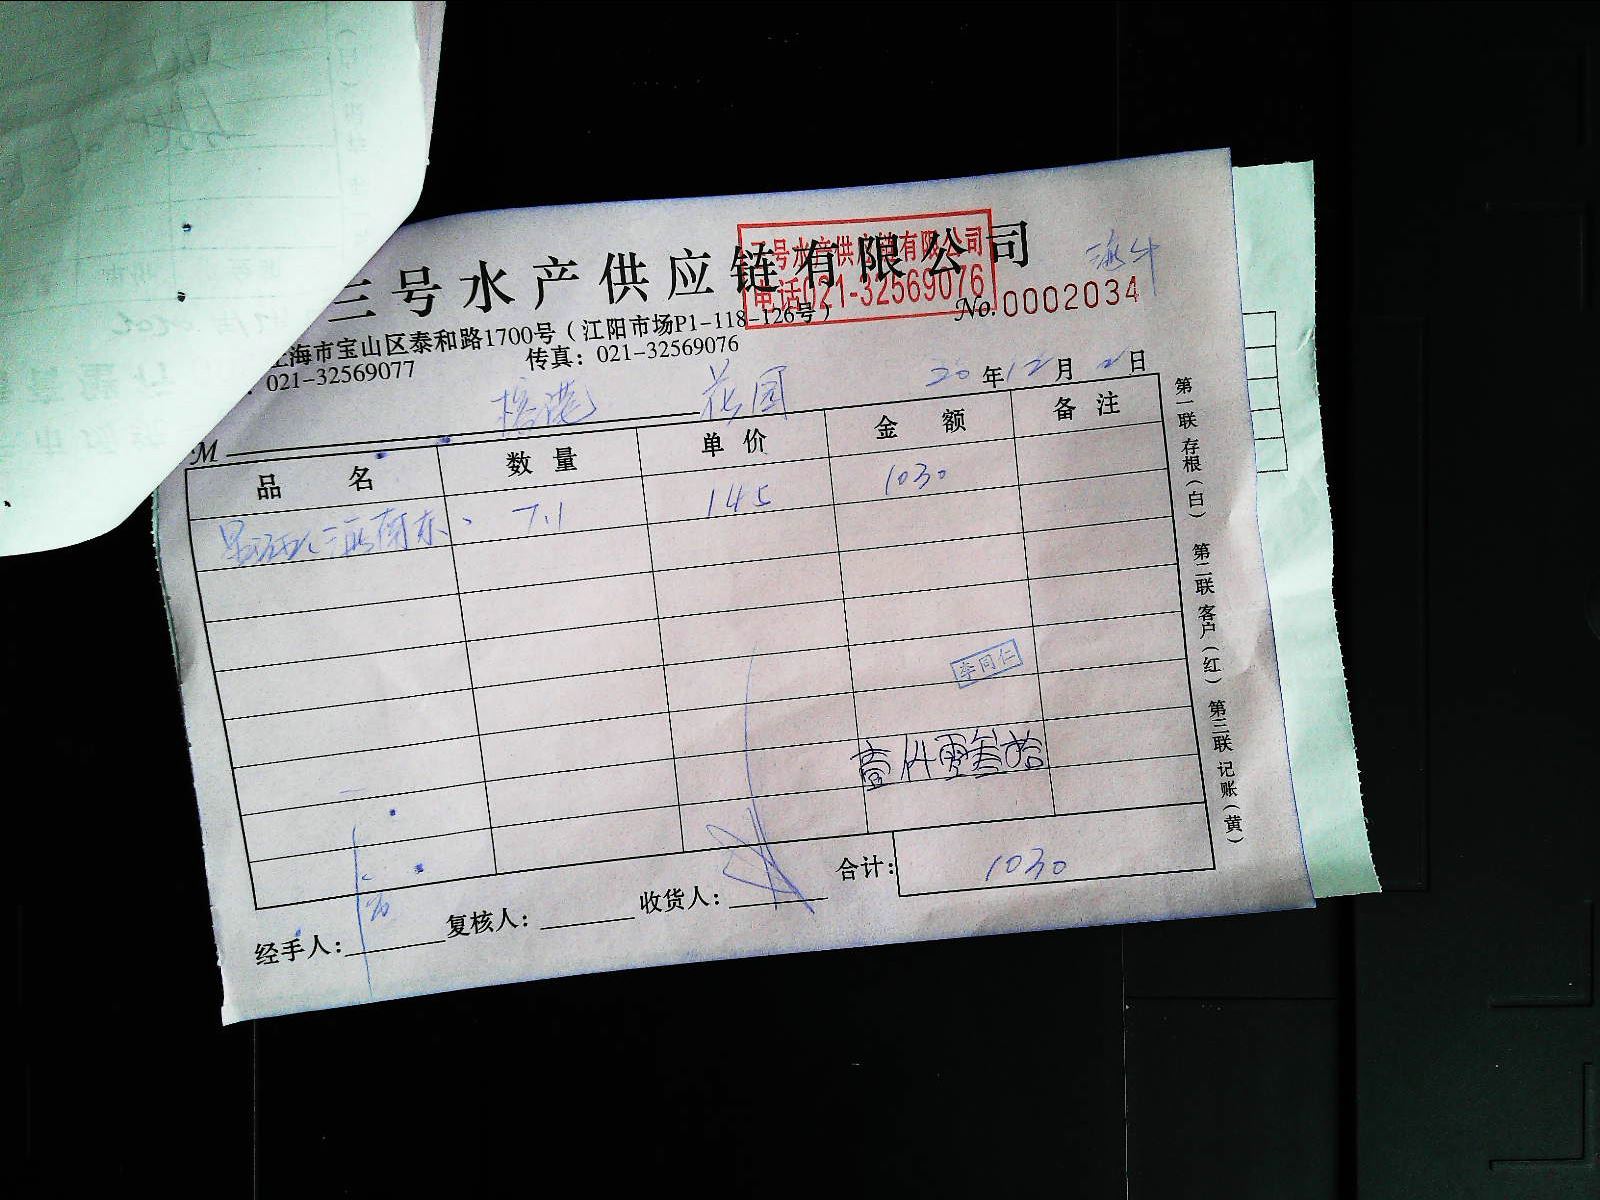 三号水产供应链有限公司
三号水产供应链有限公司
电话021-32569076
No. 0002034
上海市宝山区泰和路1700号（江阳市场P1-118-126号）
021-32569077 传真：021-32569076
榕港 花园 20年12月2日
M
品名 数量 单价 金额 备注
7.1 145 1030
李同仁
壹仟零叁拾
合计： 1030
经手人： 复核人： 收货人：
第一联 存根（白） 第二联 客户（红） 第三联 记账（黄）